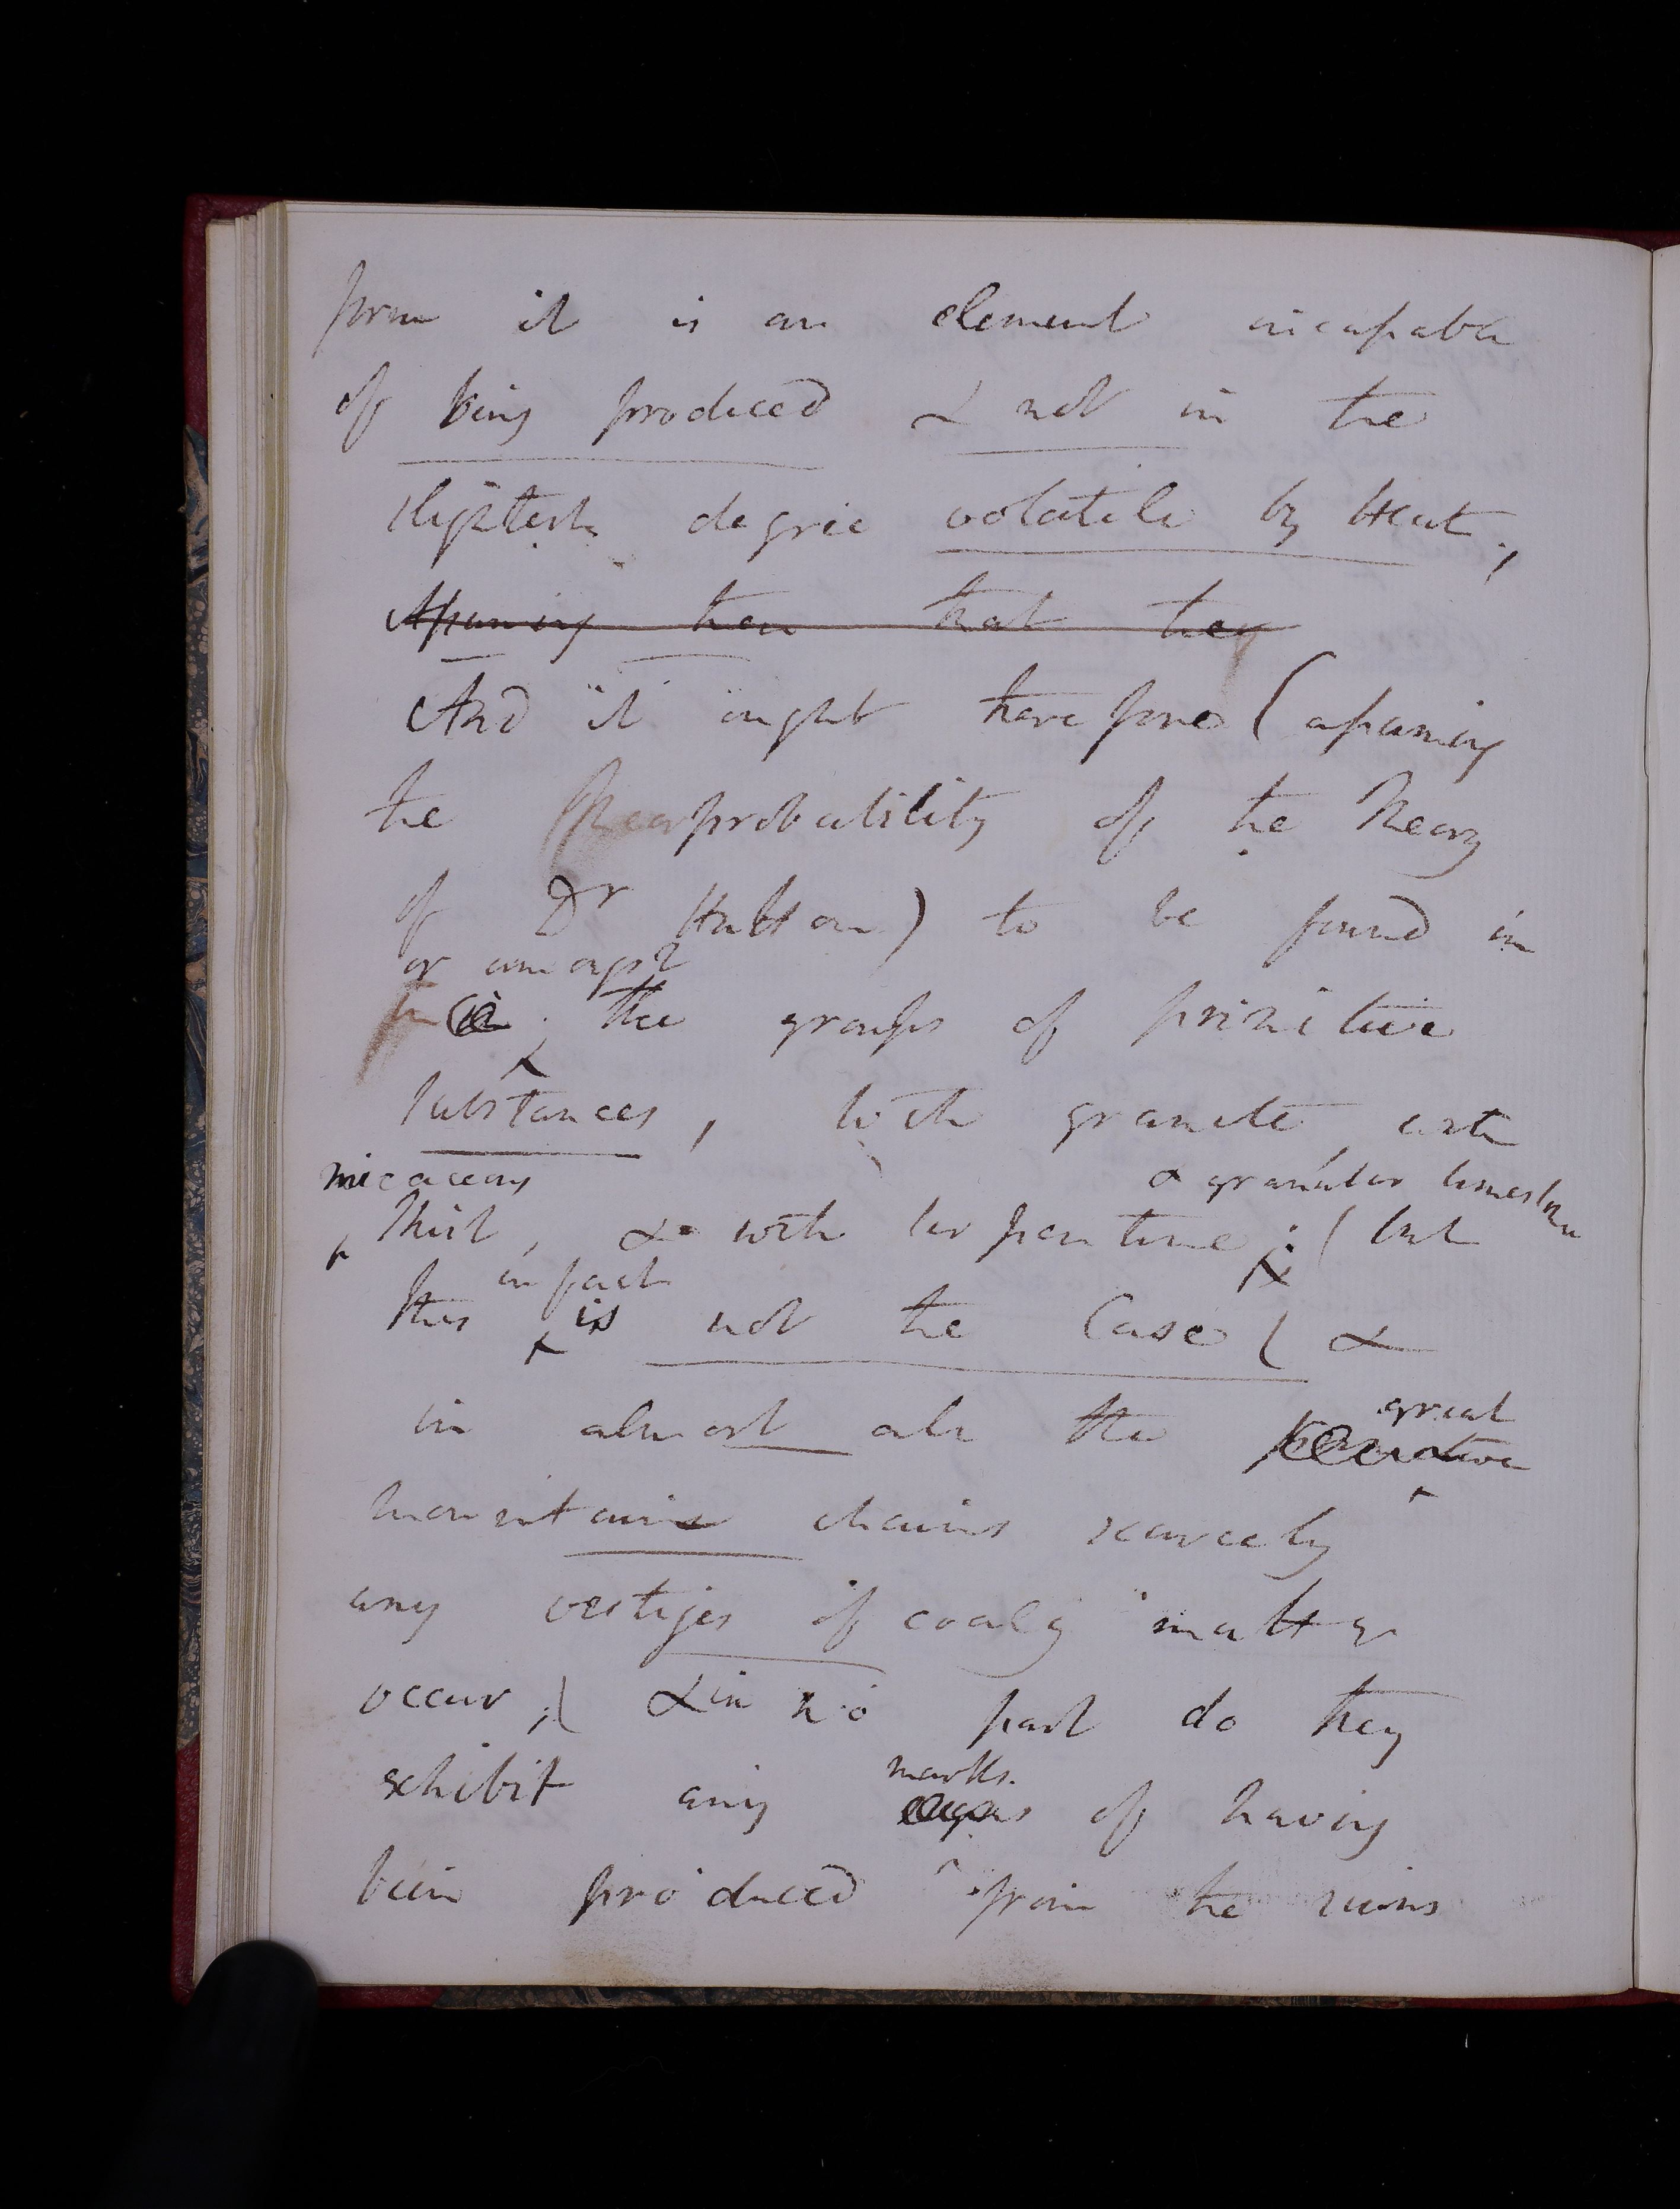 form it is an element incapable
of being produced & not in the
slightest degree volatile by Heat;
Assuming then that they
And it ought therefore ( assuming
the probability of the Theory
of Dr Hutton) to be found in
or amongst
the groups of primitive
substances, both granite with
micaceous & granular limestone
Shist, & with serpentine; ( but
in fact
this is not the Case ( &
great
in almost all the
mountain chains scarcely
any vestiges of coaly matter
occur; ( & in no part do they
marks.
exhibit any signs of having
been produced from the ruins